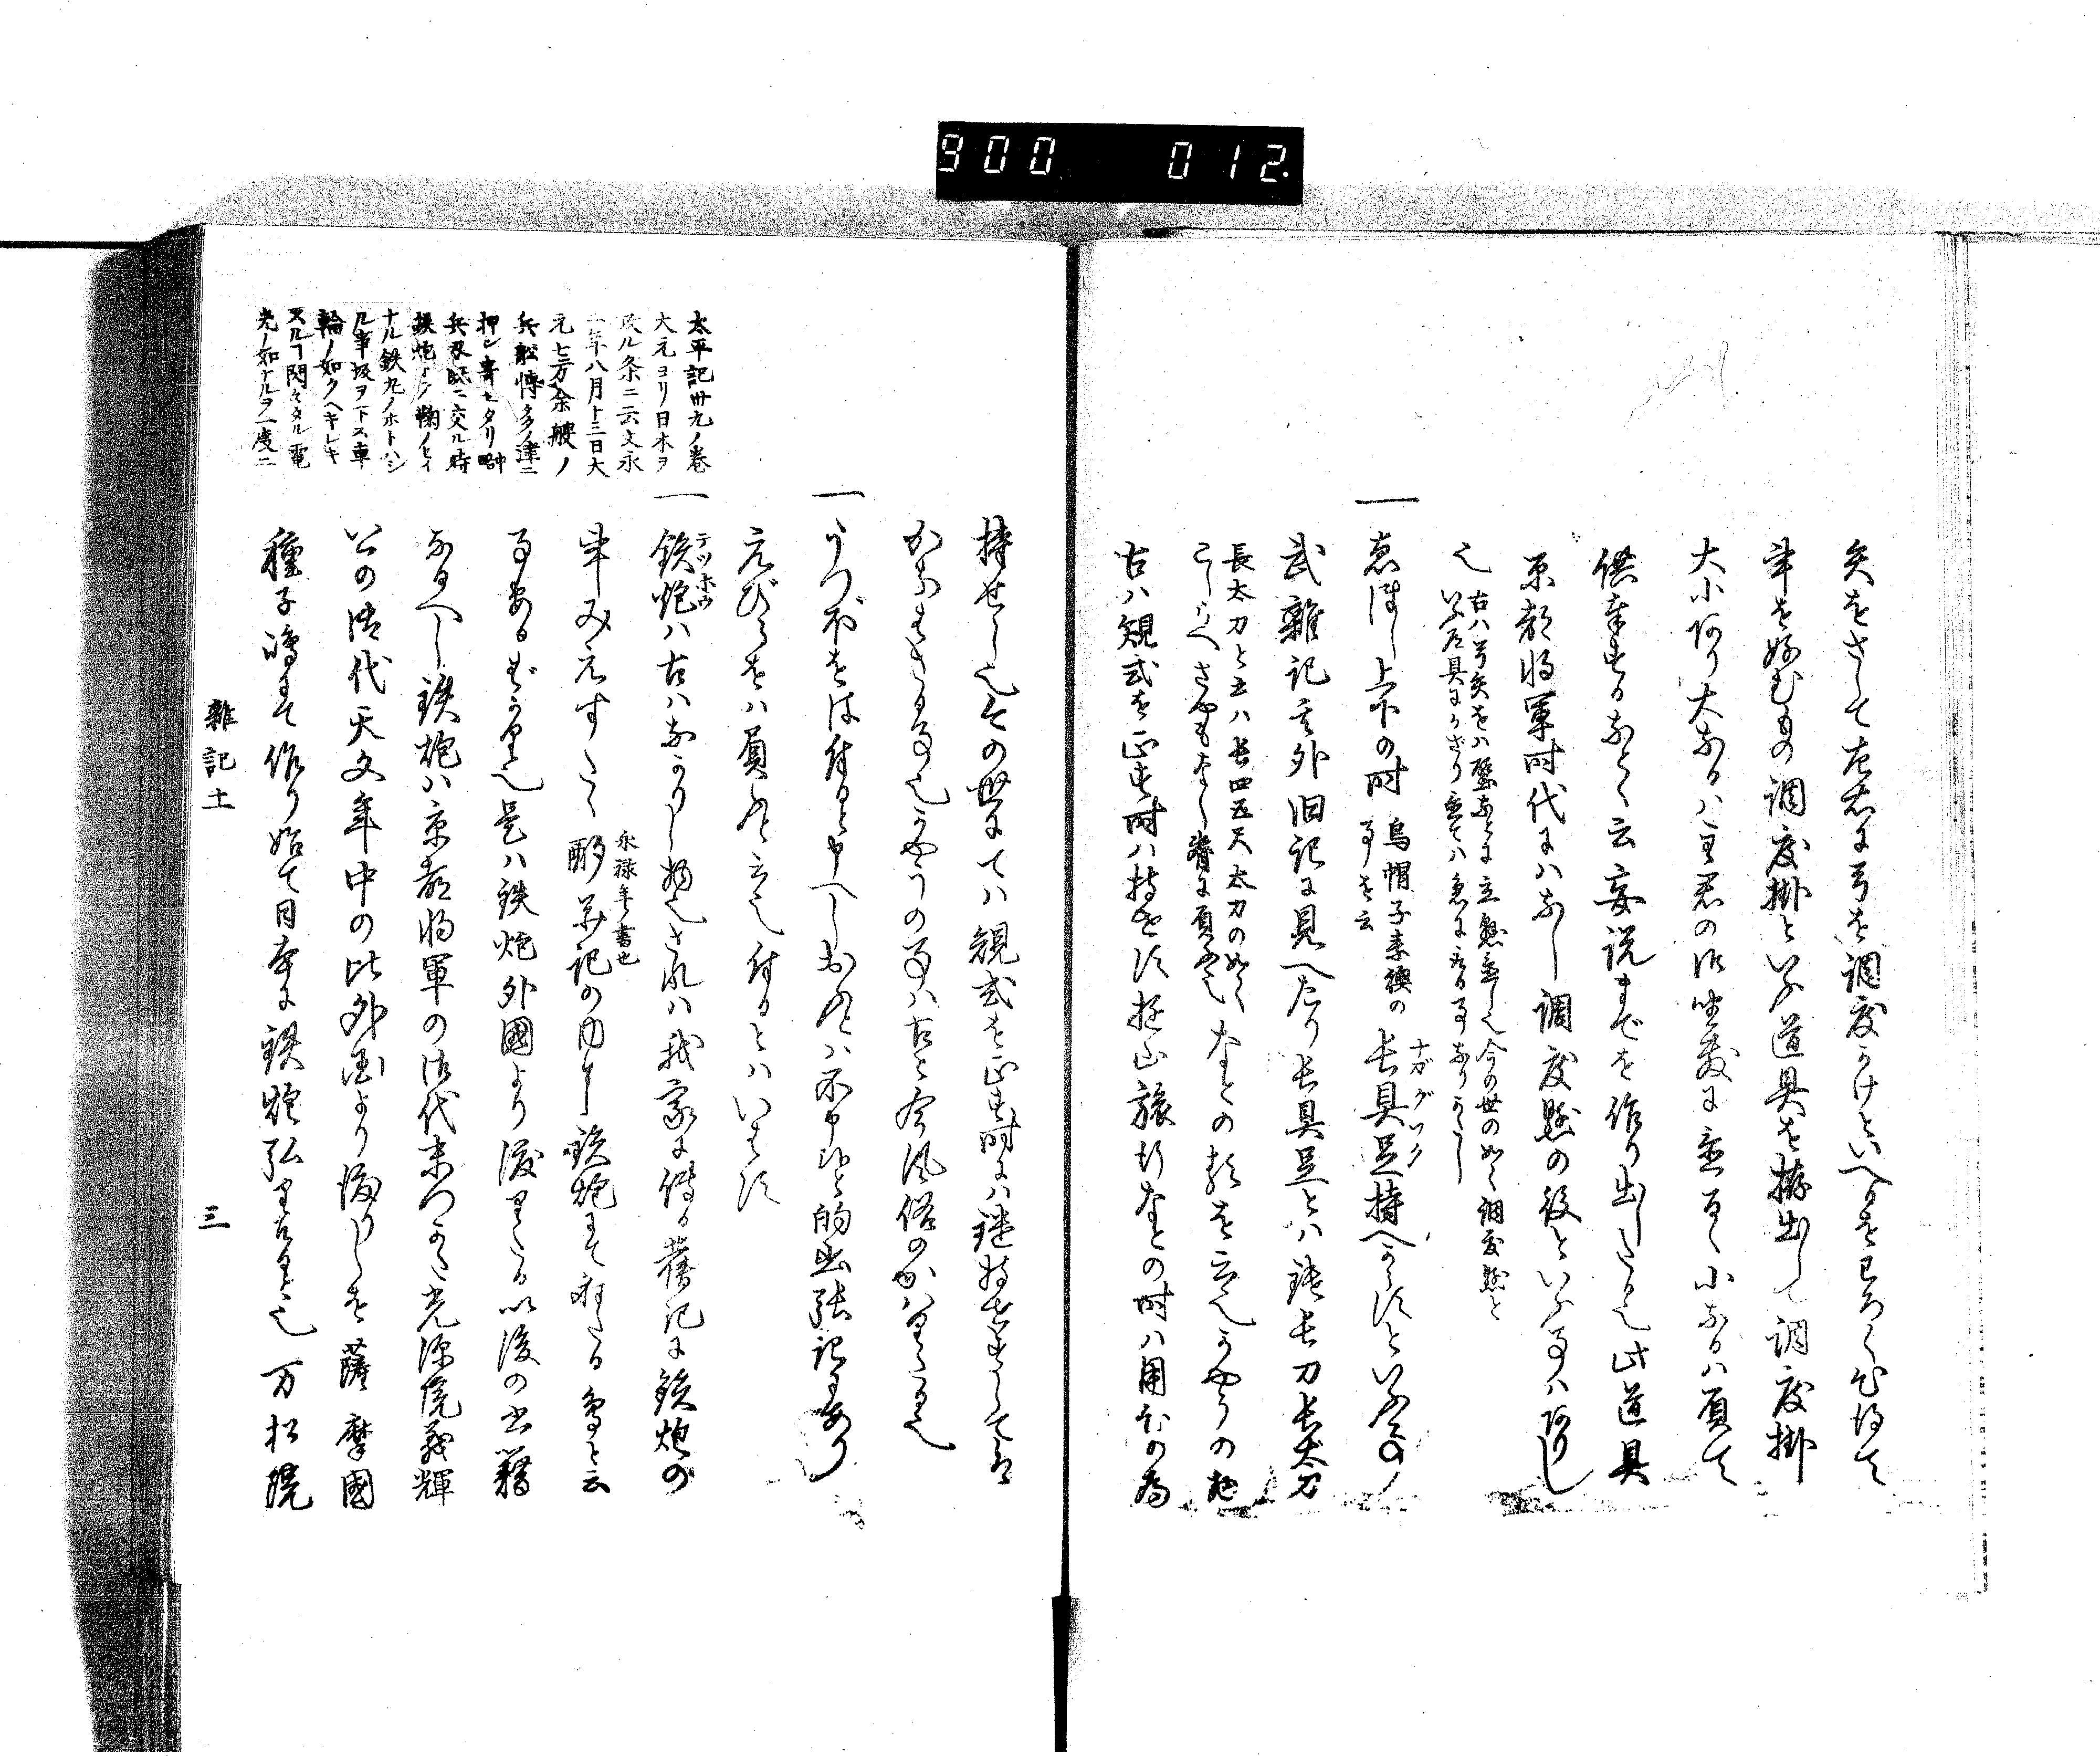 900 012.
矢をさして左右に弓を調度かけといへるをわろく心得て
事を好むもの調度掛といふ道具を拵出して調度掛
大小あり大なるハ主君の御座敷に並置く小なるハ負て
供奉するなとゝ云妄説までを作り出したる也此道具
京都将軍時代にハなし調度懸の役といふ事ハありし
也
古ハ弓矢をハ壁なとに立懸置し也今の世の如く調度懸と
いふ道具にかさり置てハ急に
一
ゑほし上下の時
烏帽子素襖の
事を云
長具足持へからすといふ事
ナガグソク
武雑記其外旧記に見へたり長具足とハ鑓長刀長太刀
長太刀と云ハ長四五尺太刀の如く
こしらへさやもなく脊に負也
なとの類を云也かやうの物
古ハ規式を正す時ハ持せす遊山旅行なとの時ハ用心の為
持せし也今の世にてハ規式を正す時にハ鑓持せすしてハ
かなはさる事也かやうの事ハ古と今風俗のかハりたる也
一
うつぼをは付ると申へしおふとハ不申候と的出張記にあり
えびらをハ負ふと云也付るとハいはす
一
鉄炮ハ古ハなかりし物也されハ我家に傳る舊記に鉄炮の
テツホウ
事みえすたゝ
永禄年書也
記の内に鉄炮にて射たる鳥と云
事あるばかり也是ハ鉄炮外國より渡りたる以後の書籍
なるへし鉄炮ハ京都将軍の御代末つかた光源院義輝
公の御代天文年中の比外国より渡りしを薩摩國
種子嶋にて作り始て日本に鉄炮弘りたる也万松院
太平記卅九ノ巻
大元ヨリ日本ヲ
攻ル条ニ云文永
二年八月十三日大
元七万余艘ノ
兵舩博多ノ津ニ
押シ寄セタリ中略
兵刃既ニ交ル時
鉄炮トテ鞠ノセイ
ナル鉄丸ノホトハシ
ル事坂ヲ下ス車
輪ノ如クヘキレキ
スルヿ閃々タル電
光ノ如ナルヲ一度ニ
雜記十一
三